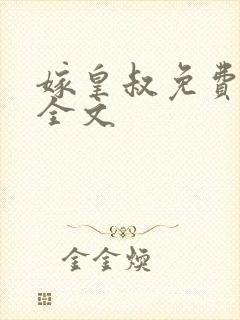 嫁皇叔免費
全文
金金煥